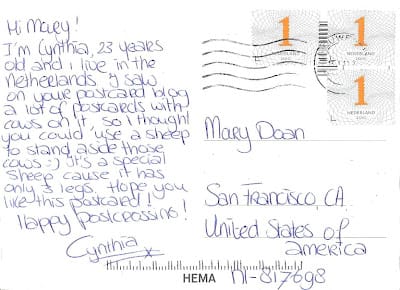 Hi Mary!
I'm Cynthia, 23 years
old and I live in the
Netherlands. I saw
on your postcard blog
a lot of postcards with
cows on it, so I thought
you could use a sheep
to stand aside those
cows :-) It's a special
sheep cause it has
only 3 legs. Hope you
like this postcard!
Happy postcrossing!
Cynthia
1
NEDERLAND
1
NEDERLAND
1
NEDERLAND
Mary Doan
San Francisco, CA
United States of
america
nl-817698
HEMA